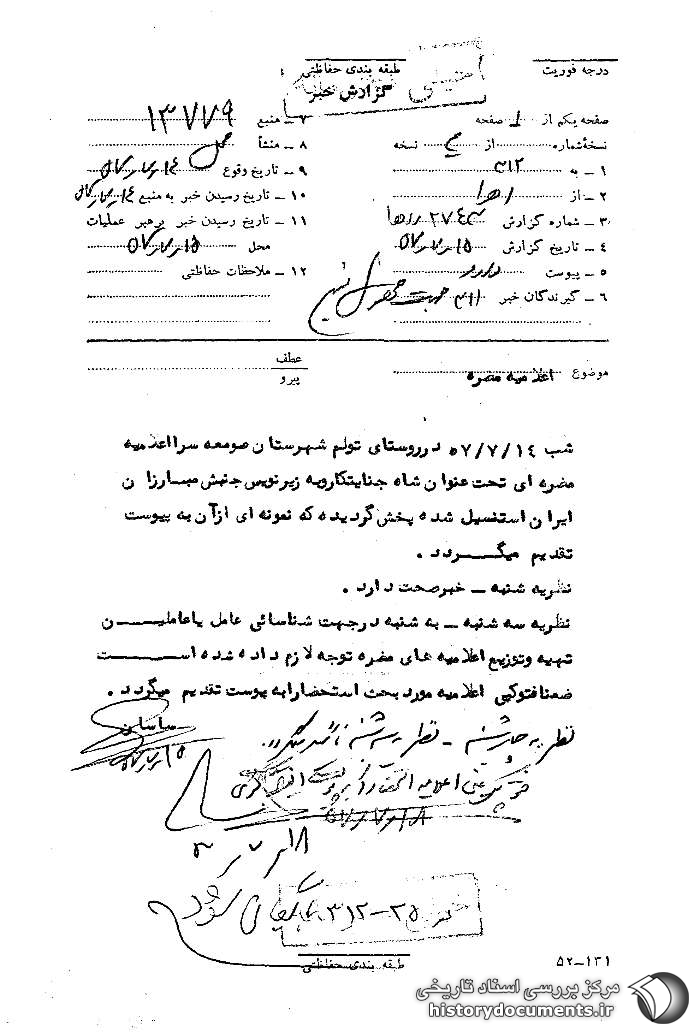 درجه فوریت
طبقه بندی حفاظتی :
خیلی
گزارش خبر
صفحه یکم از ۱ صفحه
نسخهٔ شماره از نسخه
۱ ـ به ۳۱۲
۲ ـ از ۱ﻫ۱
۳ ـ شماره گزارش
۴ ـ تاریخ گزارش ۵۷/۷/۱۵
۵ ـ پیوست دارد
۶ ـ گیرندگان خبر ۳۱۱ جهت
۷ ـ منبع ۱۳۷۷۹
۸ ـ منشأ محل
۹ ـ تاریخ وقوع ۵۷/۷/۱۴
۱۰ ـ تاریخ رسیدن خبر به منبع ۵۷/۷/۱۴
۱۱ ـ تاریخ رسیدن خبر برهبر عملیات
محل ۵۷/۷/۱۵
۱۲ ـ ملاحظات حفاظتی
موضوع اعلامیه مضره
عطف
پیرو
شب ۵۷/۷/۱۴ در روستای تولم شهرستان صومعه سرا اعلامیه
مضره ای تحت عنوان شاه جنایتکار و به زیرنویس جنبش مبارزان
ایران استنسیل شده پخش گردیده که نمونه ای از آن به پیوست
تقدیم میگردد .
نظریه شنبه ـ خبر صحت دارد .
نظریه سه شنبه ـ به شنبه در جهت شناسائی عامل یا عاملین
تهیه و توزیع اعلامیه های مضره توجه لازم داده شده است
ضمنا فتوکپی اعلامیه مورد بحث استحضارا به پیوست تقدیم میگردد .
ساسان
نظریه چهارشنبه ـ نظریه سه شنبه تائید میگردد.
۵۷/۷/۱۵
فتوکپی اعلامیه
۵۷/۷/۱۸
۱۸/۷
بایگانی شود
طبقه بندی حفاظتی
۵۲ـ۱۳۱
مرکز بررسی اسناد تاریخی
historydocuments.ir